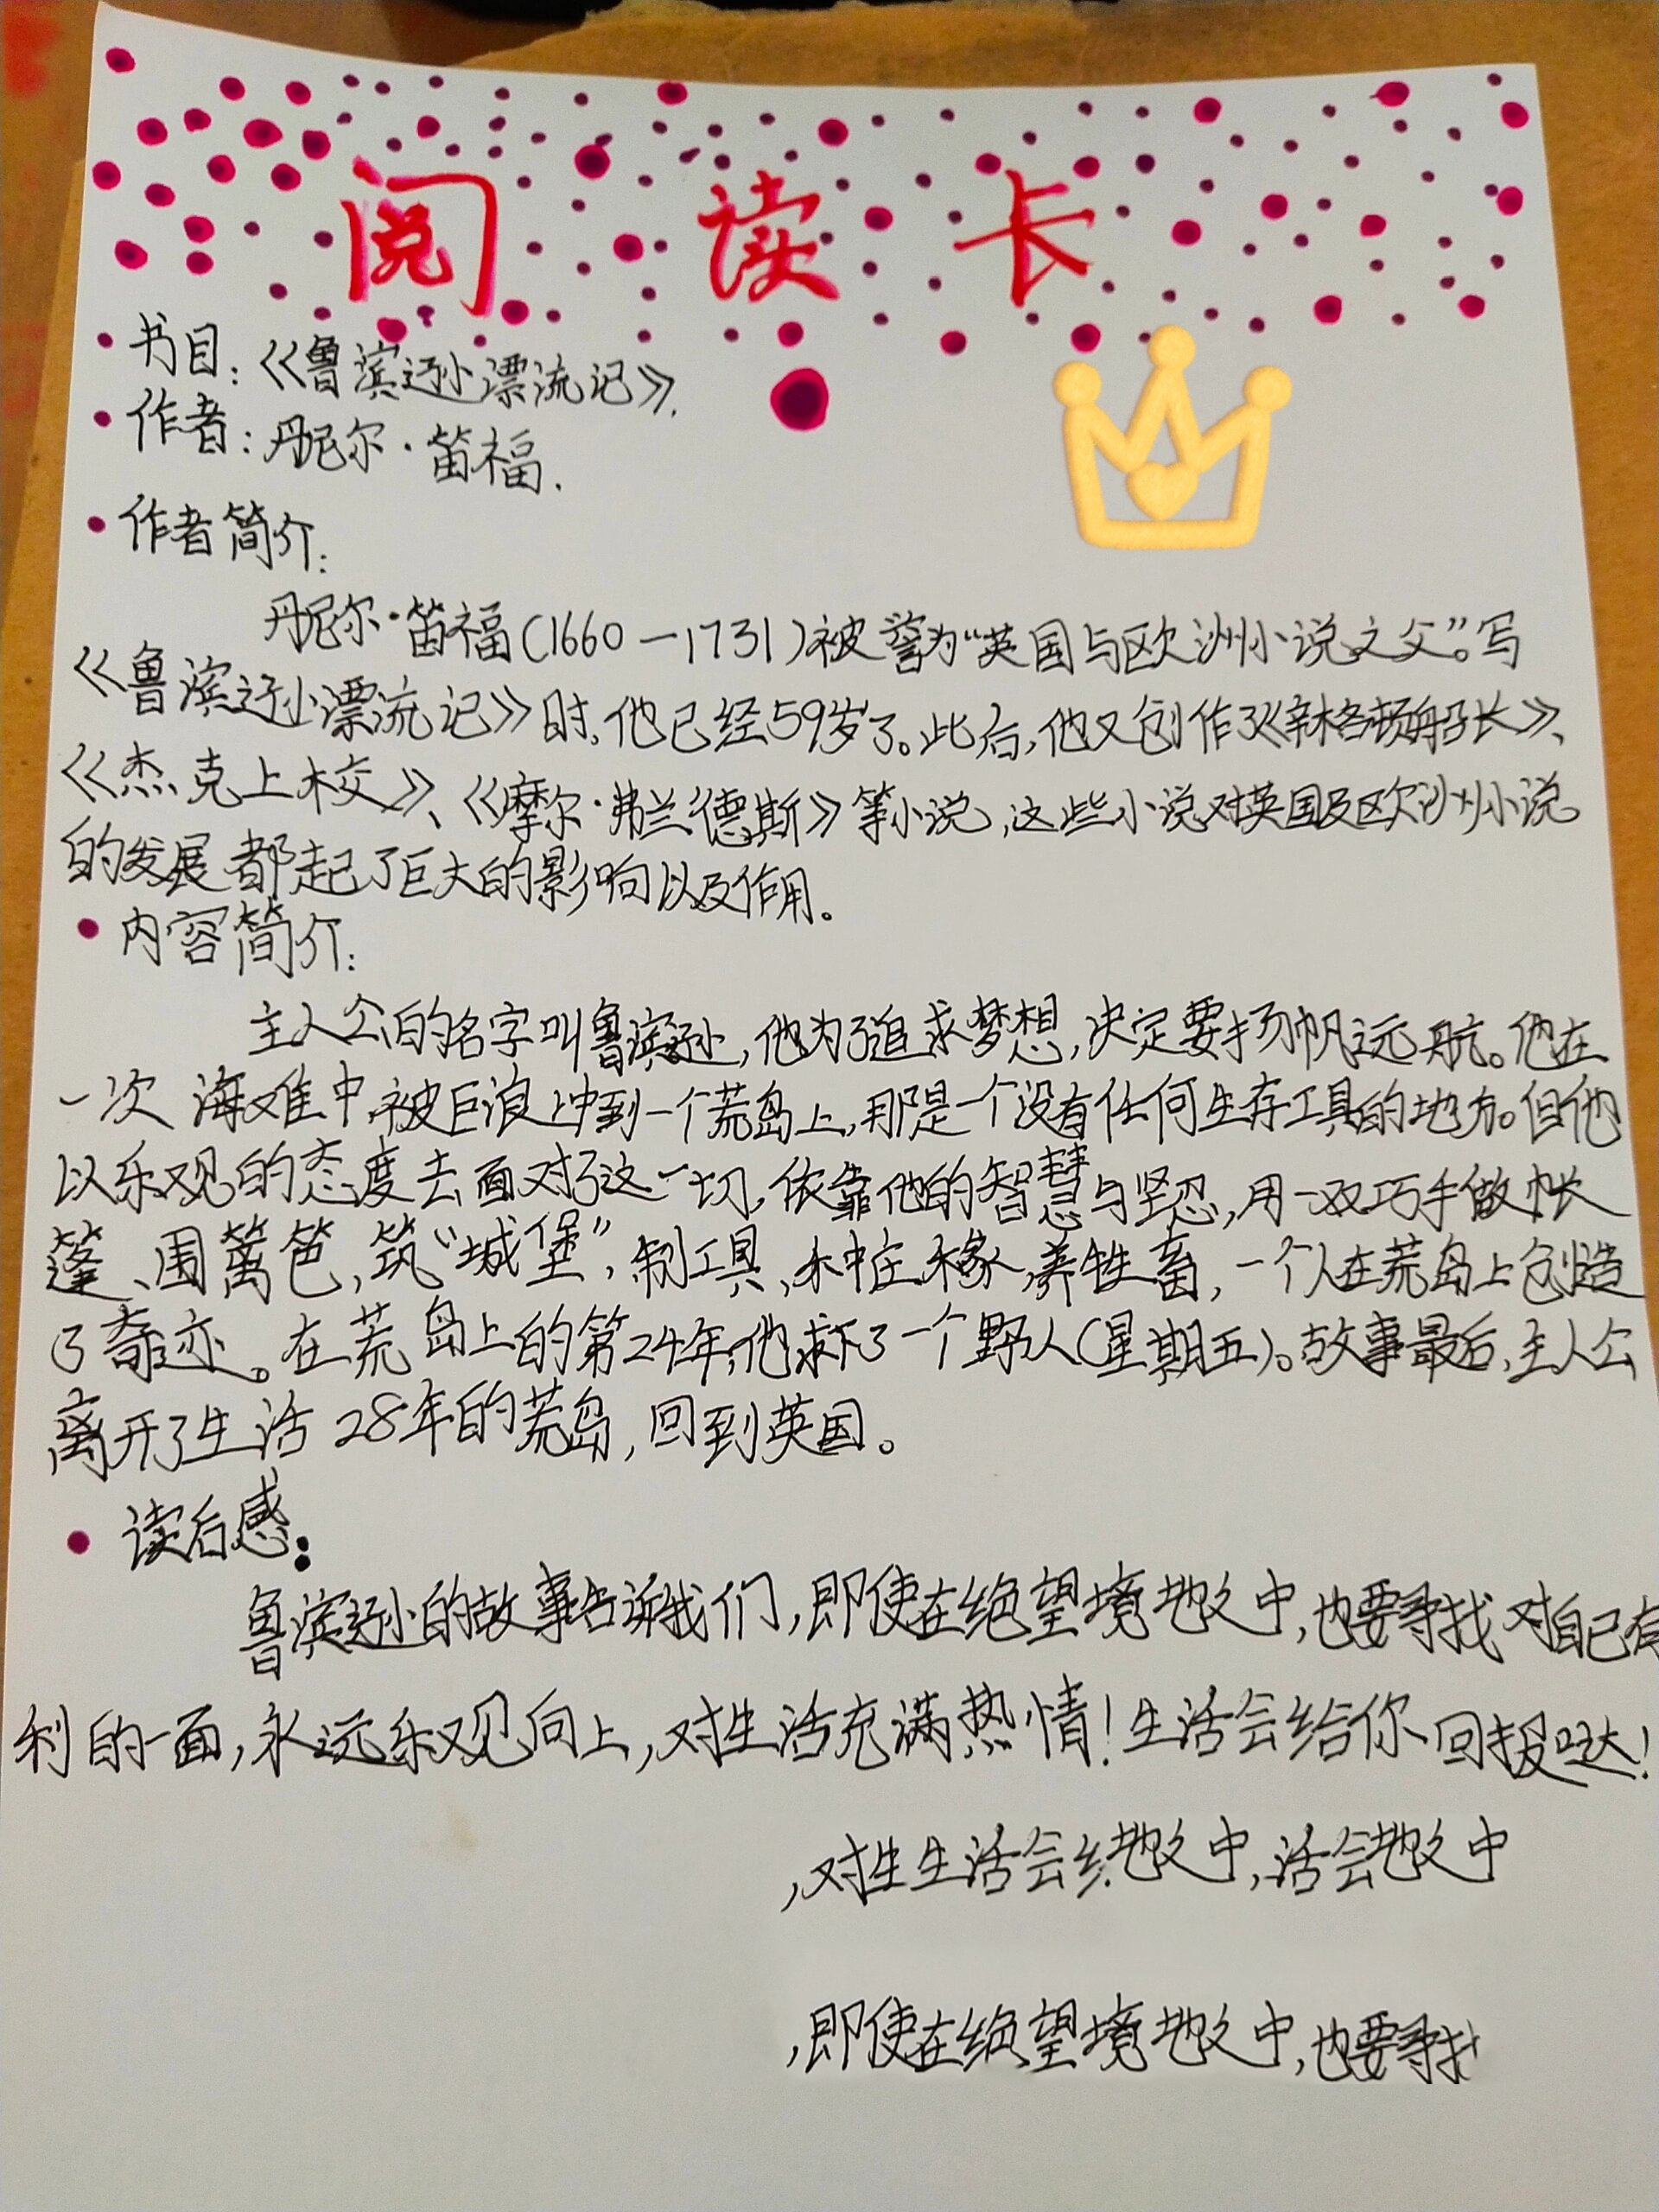 阅读卡
·书目:《鲁滨逊漂流记》.
·作者:丹尼尔·笛福.
·作者简介:
丹尼尔·笛福(1660一1731)被誉为“英国与欧洲小说之父”。写
《鲁滨逊漂流记》时,他已经59岁了。此后,他又创作了《辛格顿船长》、
《杰克上校》、《摩尔·弗兰德斯》等小说,这些小说对英国及欧洲小说
的发展都起了巨大的影响以及作用。
·内容简介:
主人公的名字叫鲁滨逊,他为了追求梦想,决定要扬帆远航。他在
一次海难中被巨浪冲到一个荒岛上,那是一个没有任何生存工具的地方。但他
以乐观的态度去面对了这一切,依靠他的智慧与坚忍,用一双巧手做帐
篷、围篱笆,筑“城堡”,制工具、种庄稼,养牲畜,一个人在荒岛上创造
了奇迹。在荒岛上的第24年,他救下了一个野人(星期五)。故事最后,主人公
离开了生活28年的荒岛,回到英国。
·读后感:
鲁滨逊的故事告诉我们,即使在绝望境地之中,也要寻找对自己有
利的一面,永远乐观向上,对生活充满热情!生活会给你回报哒!
,对生生活会地之中,活会地之中
,即使在绝望境地之中,也要寻找